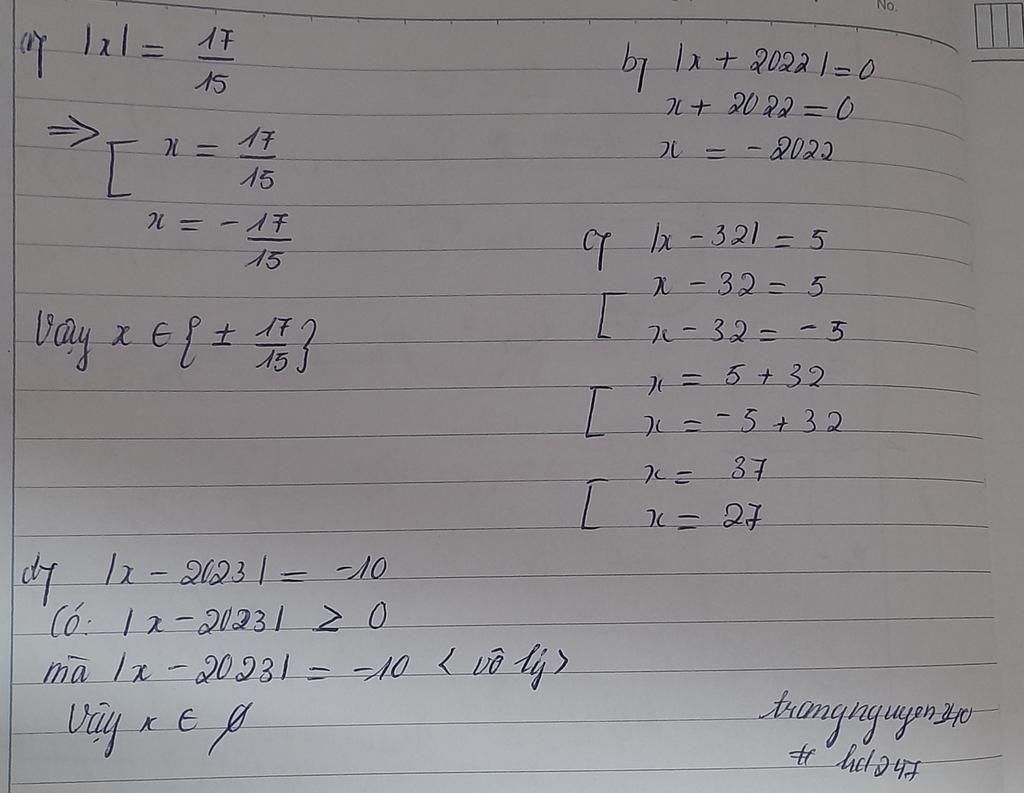 No.
a) |x| = 17/15
⇒ [ x = 17/15
x = - 17/15
Vậy x ∈ { ± 17/15 }
b) |x + 2022| = 0
x + 2022 = 0
x = - 2022
c) |x - 32| = 5
[ x - 32 = 5
x - 32 = - 5
[ x = 5 + 32
x = - 5 + 32
[ x = 37
x = 27
d) |x - 2023| = -10
Có: |x - 2023| ≥ 0
mà |x - 2023| = -10 < vô lý >
Vậy x ∈ ∅
trangnguyen210
# hd247